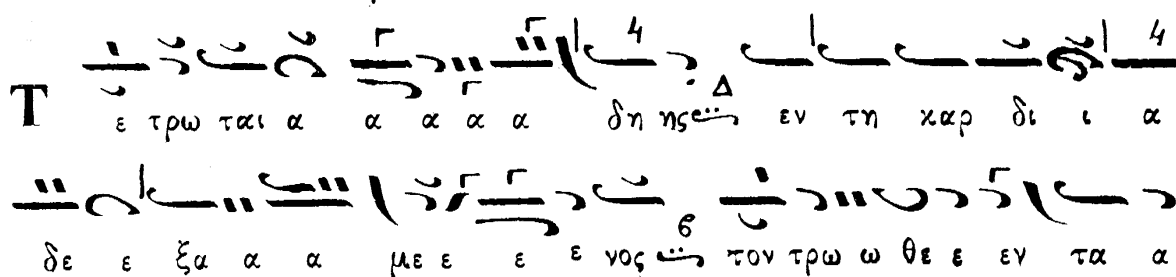 Τ ε τρω ται α α α α α δη ης Δ εν τη καρ δι ι α
δε ε ξα α α με ε ε ε νος ϐ τον τρω ω θε ε εν τα α